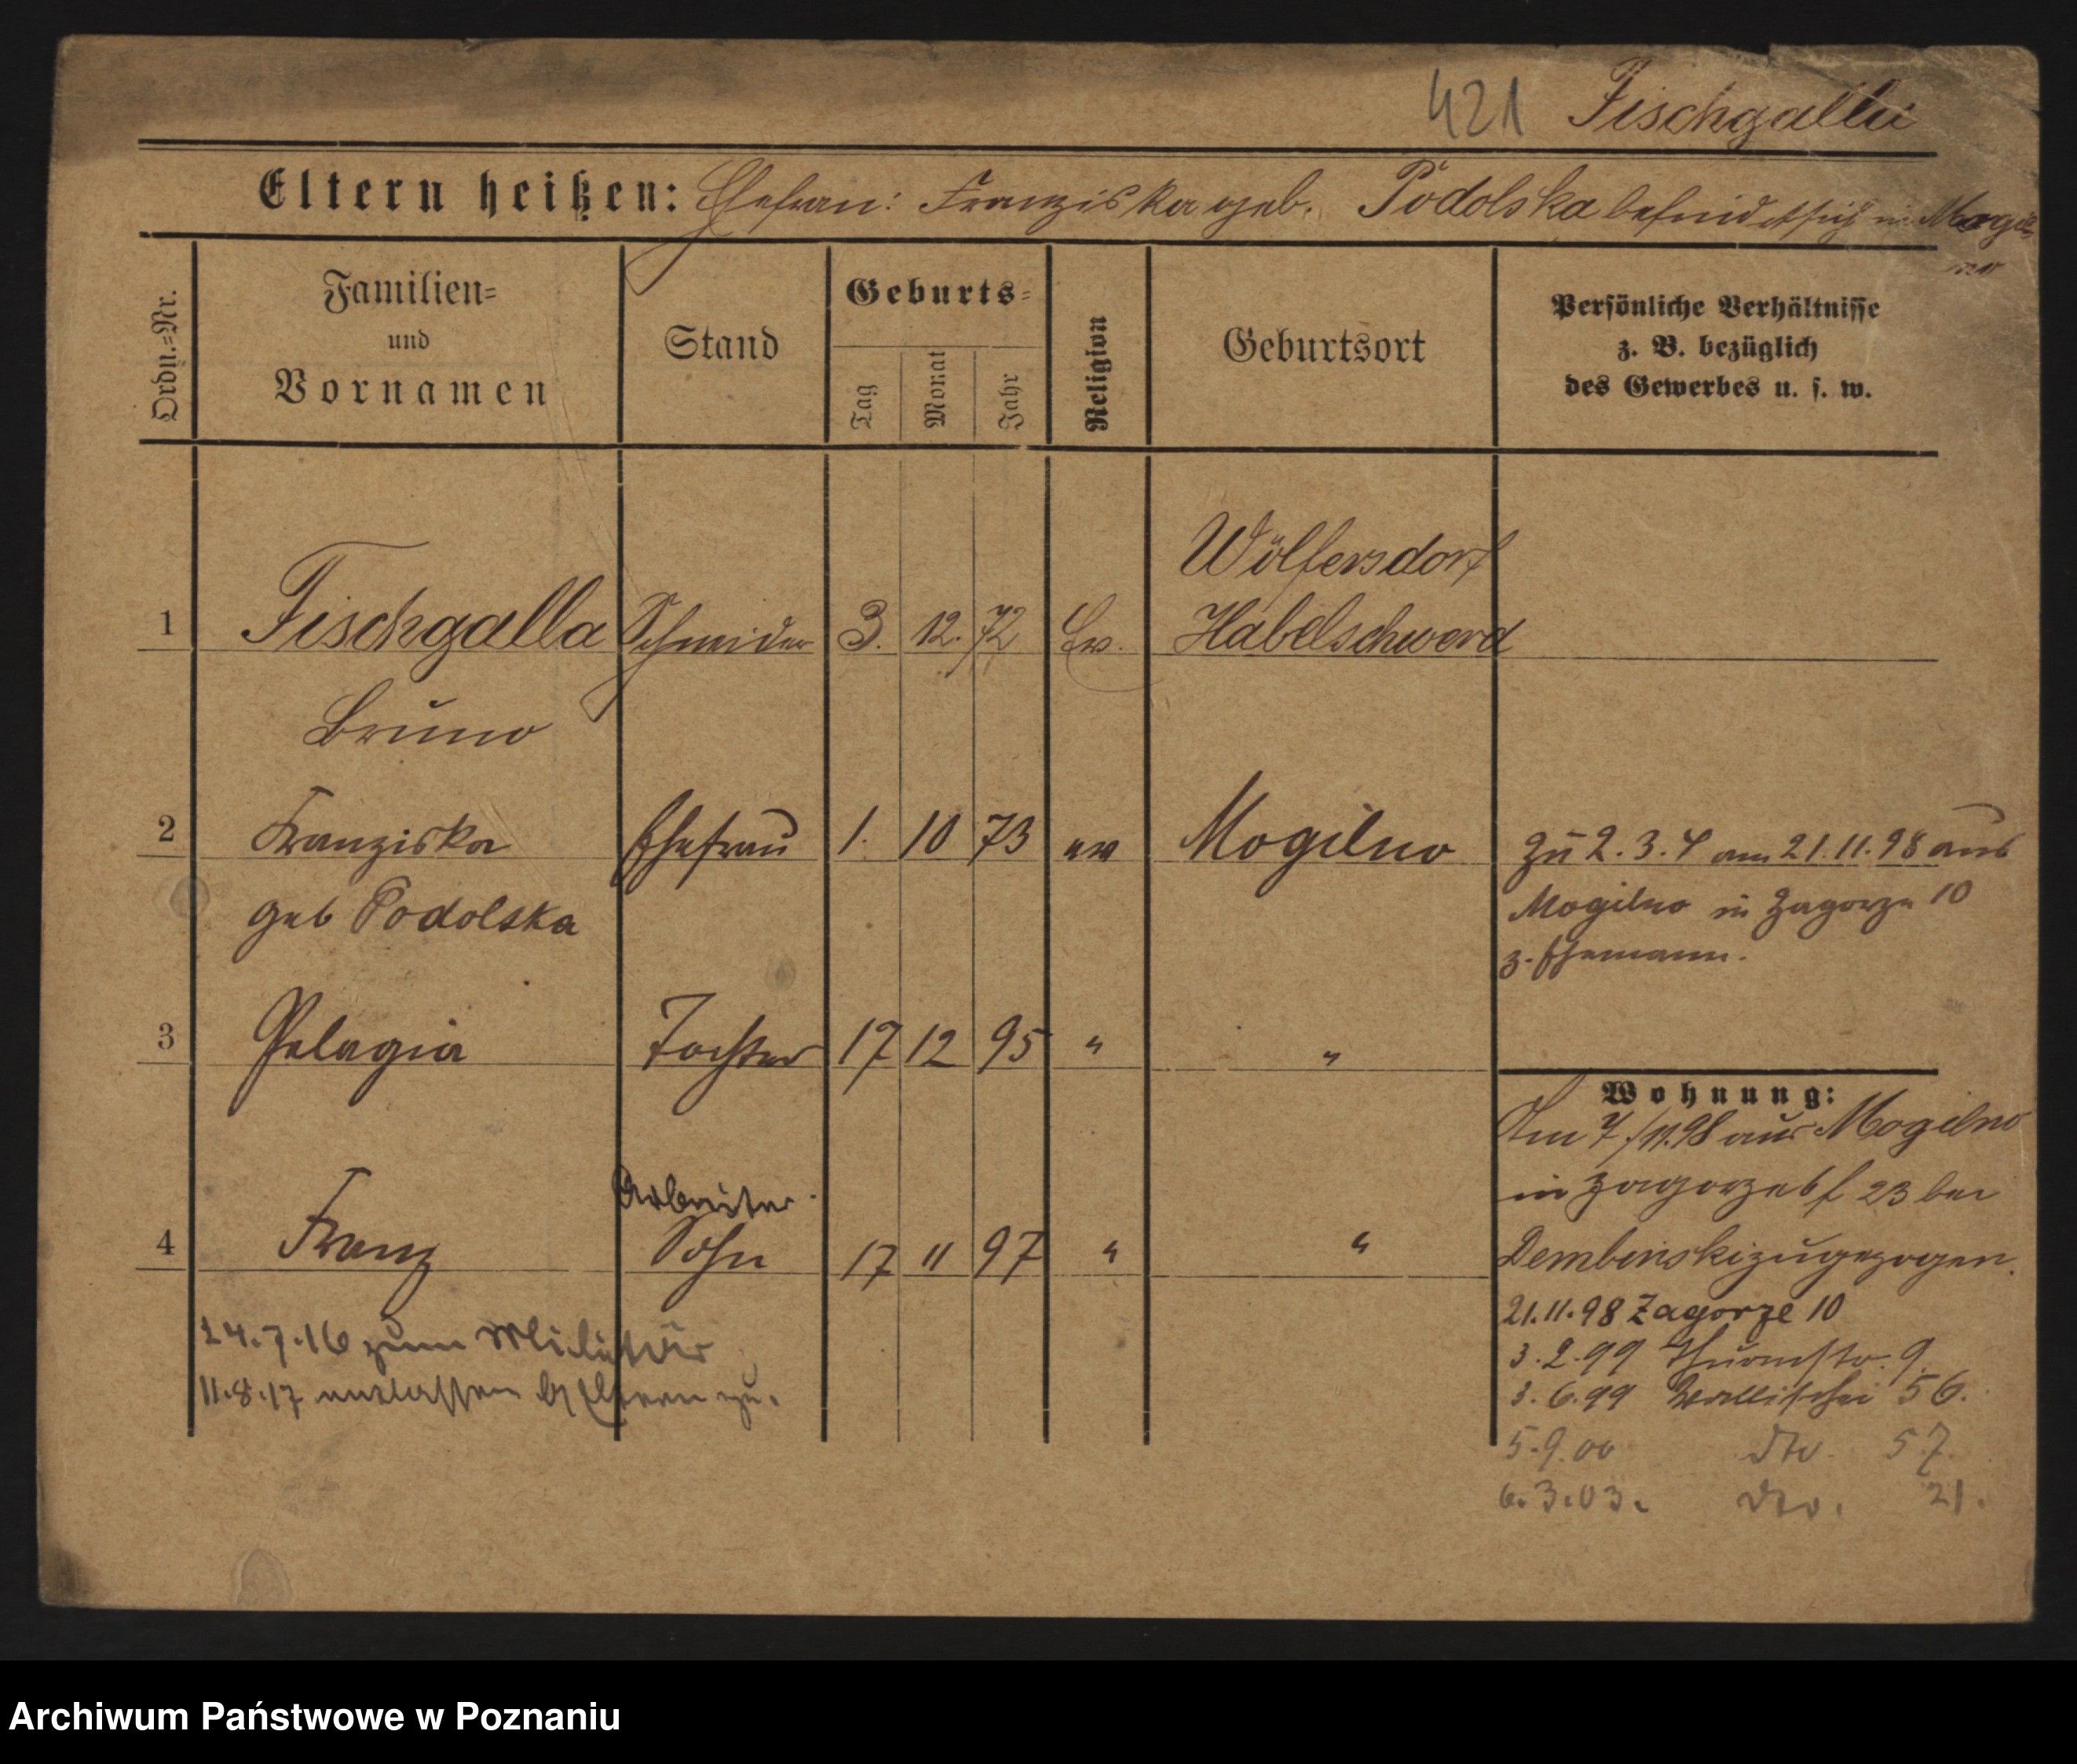 421 Fischgalla
Eltern heißen: Ehefrau: Franziska geb. Podolska befindet sich in Mogil-
no
Ordn.-Nr.
Familien-
und
Vornamen
Stand
Geburts-
Tag
Monat
Jahr
Religion
Geburtsort
Persönliche Verhältnisse
z. B. bezüglich
des Gewerbes u. s. w.
Wölfersdorf
1 Fischgalla Schneider 3. 12. 72 Ev. Habelschwerd
Bruno
2 Franziska Ehefrau 1. 10 73 ev Mogilno
geb Podolska
zu 2. 3. 4 am 21.11.98 aus
Mogilno in Zagorze 10
z. Ehemann.
3 Pelagia Tochter 17 12 95 " "
Arbeiter
4 Franz Sohn 17 11 97 " "
24.7.16 zum Militär
11.8.17 entlassen Eltern zu.
Wohnung:
Am 7/11.98 aus Mogilno
in Zagorze 23 bei
Dembinski zugezogen.
21.11.98 Zagorze 10
3.2.99 Thurmstr. 9.
3.6.99 Wallischei 56.
5.9.00 dto. 57.
6.3.03. dto. 21.
Archiwum Państwowe w Poznaniu